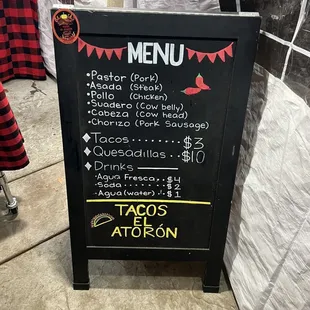 MENU
•Pastor (Pork)
•Asada (Steak)
•Pollo (Chicken)
•Suadero (Cow belly)
•Cabeza (Cow head)
•Chorizo (Pork Sausage)
♦Tacos ........ $3
♦Quesadillas ..... $10
♦Drinks
•Agua Fresca .. $4
•Soda ........ $2
•Agua (water) .. $1
TACOS
EL
ATORÓN